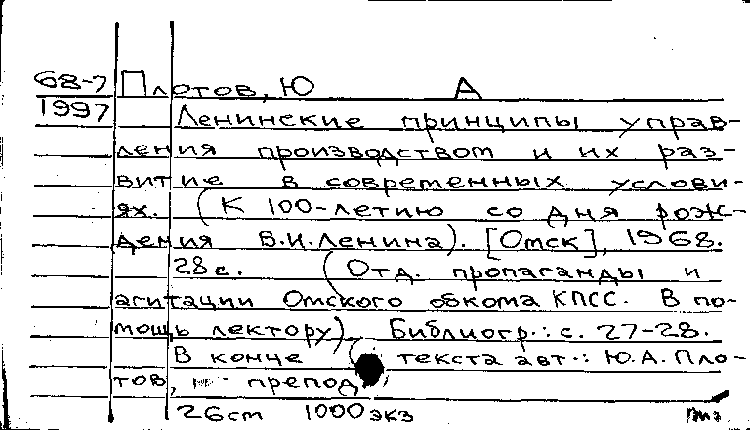 68-7 Плотов, Ю А
1997 Ленинские принципы управ-
ления производством и их раз-
витие в современных услови-
ях. (К 100-летию со дня рож-
дения В.И.Ленина). [Омск], 1968.
28 с. (Отд. пропаганды и
агитации Омского обкома КПСС. В по-
мощь лектору). Библиогр.: с. 27-28.
В конце текста авт.: Ю.А. Пло-
тов, препод
26 cm 1000 экз